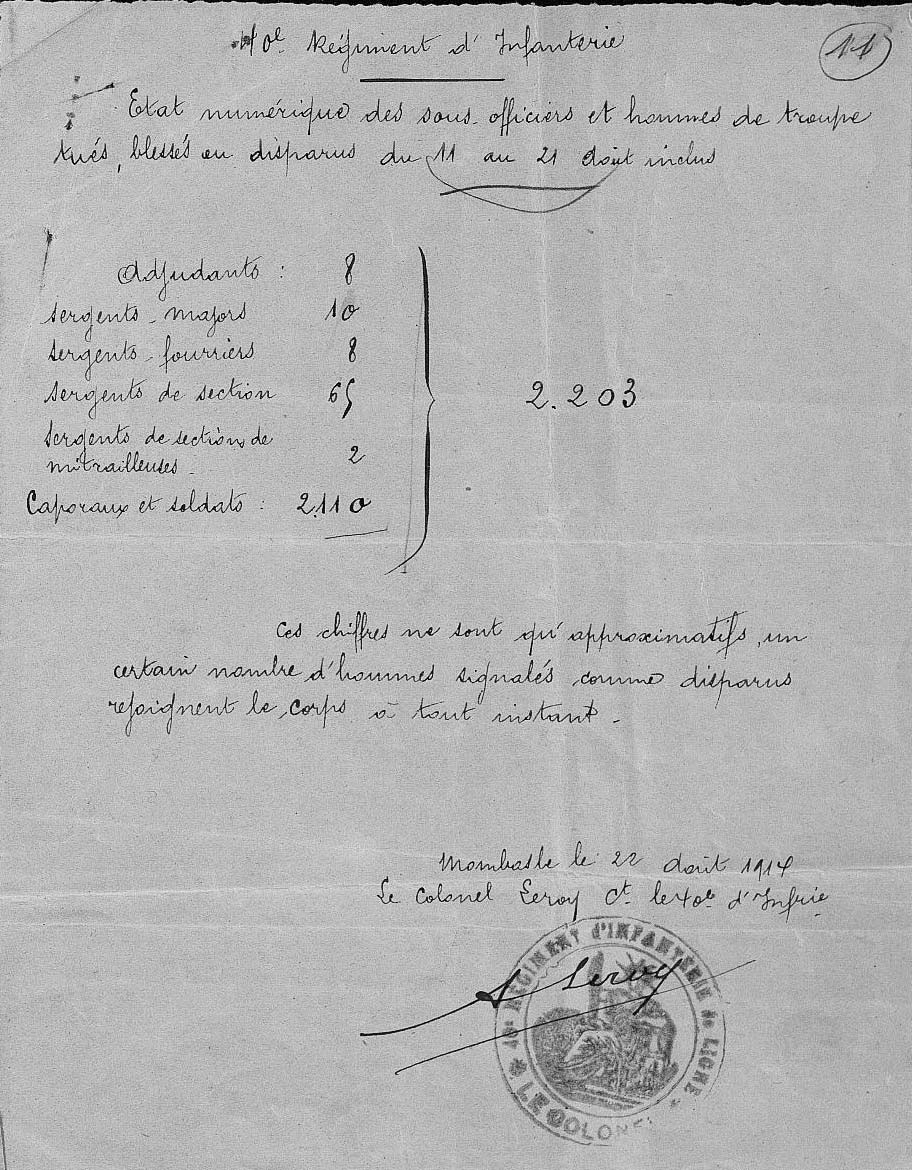 40e Régiment d'Infanterie
11
Etat numérique des sous-officiers et hommes de troupe
tués, blessés ou disparus du 11 au 21 Août inclus
Adjudants : 8
Sergents-majors 10
Sergents-fourriers 8
Sergents de section 65
Sergents de sections de
mitrailleuses - 2
Caporaux et soldats : 2.110
2.203
Ces chiffres ne sont qu'approximatifs, un
certain nombre d'hommes signalés comme disparus
rejoignent le corps à tout instant -
le 22 Août 1914
Le Colonel Leroy Ct. le 40e d'Infrie
A Leroy
40e RÉGIMENT D'INFANTERIE de LIGNE
* LE COLONEL *